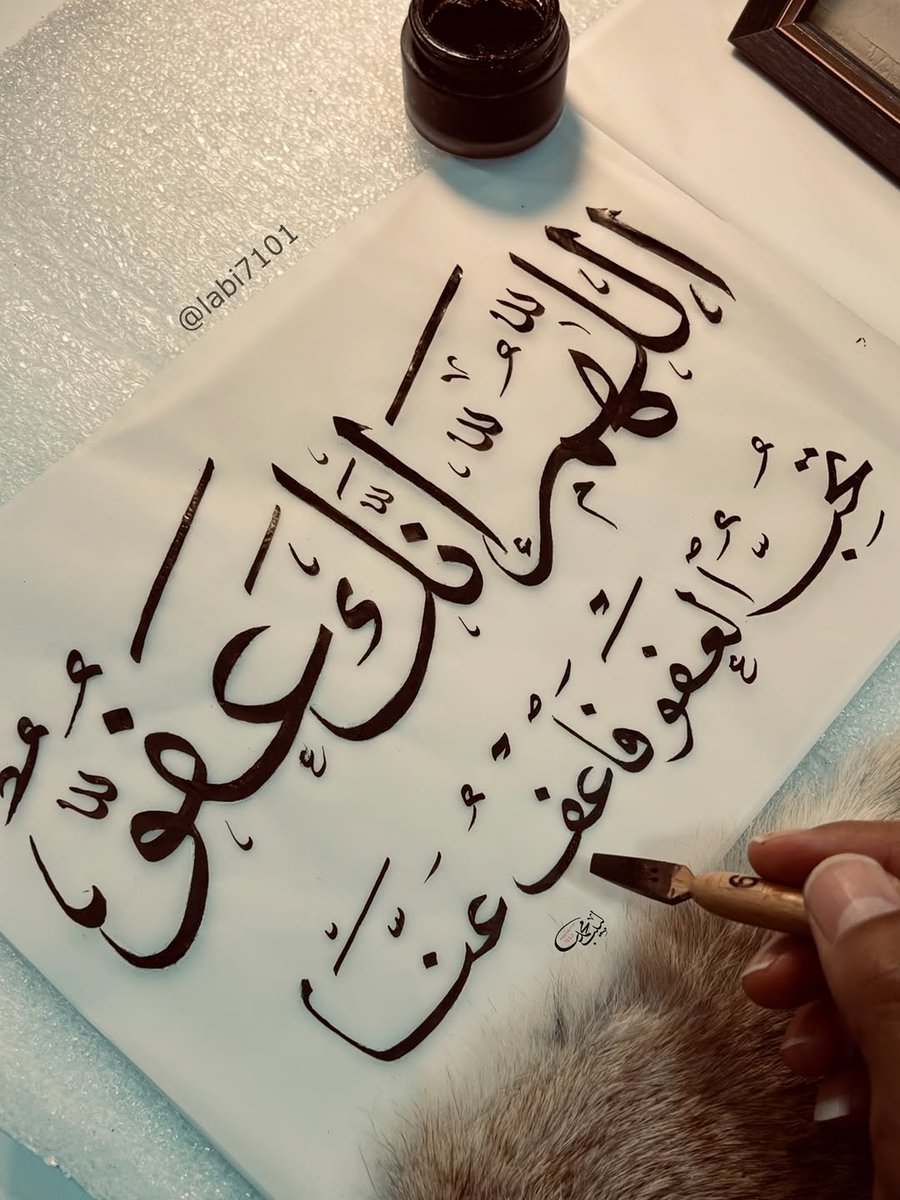 اللهم إنك عفو
تحب العفو فاعف عنا
@labi7101
6